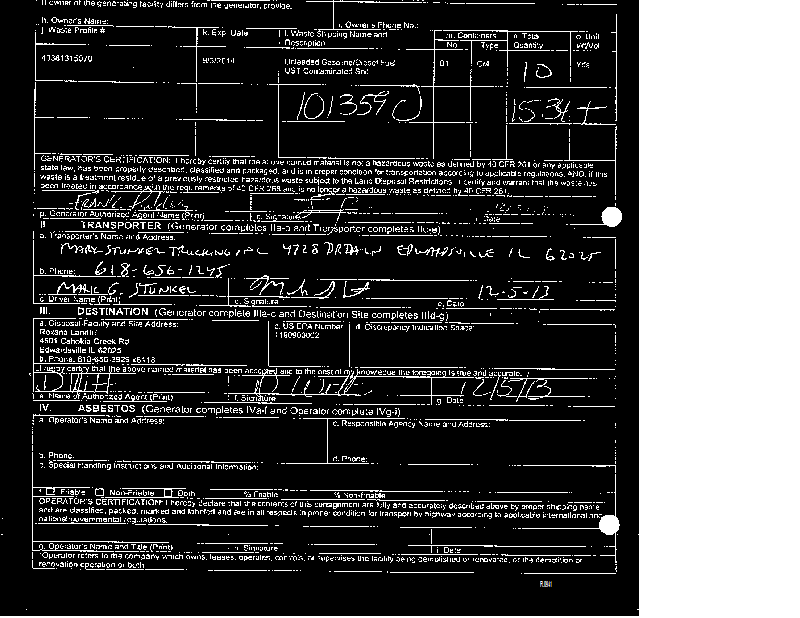 If owner of the generating facility differs from the generator, provide:
h. Owner's Name: i. Owner's Phone No.:
j. Waste Profile # k. Exp. Date l. Waste Shipping Name and Description m. Containers No. Type n. Total Quantity o. Unit Wt/Vol
9/3/2014 Unleaded Gasoline/Diesel Fuel 01 10 Yds
UST Contaminated Soil
101359 15.34 t
GENERATOR'S CERTIFICATION: I hereby certify that the above named material is not a hazardous waste as defined by 40 CFR 261 or any applicable
state law, has been properly described, classified and packaged, and is in proper condition for transportation according to applicable regulations. AND, if this
waste is a treatment residue of a previously restricted hazardous waste subject to the Land Disposal Restrictions, I certify and warrant that the waste has
been treated in accordance with the requirements of 40 CFR 268 and is no longer a hazardous waste as defined by 40 CFR 261.
p. Generator Authorized Agent Name (Print) q. Signature r. Date
II. TRANSPORTER (Generator completes IIa-b and Transporter completes IIc-e)
a. Transporter's Name and Address:
MARK STUNKEL TRUCKING, INC 4728 EDWARDSVILLE IL 62025
b. Phone: 618-656-1245
MARK G. STUNKEL 12-5-13
c. Driver Name (Print) d. Signature e. Date
III. DESTINATION (Generator complete IIIa-c and Destination Site completes IIId-g)
a. Disposal Facility and Site Address: c. US EPA Number d. Discrepancy Indication Space:
Roxana Landfill
4601 Cahokia Creek Rd
Edwardsville IL 62025
b. Phone:
I hereby certify that the above named material has been accepted and to the best of my knowledge the foregoing is true and accurate.
12/5/13
e. Name of Authorized Agent (Print) f. Signature g. Date
IV. ASBESTOS (Generator completes IVa-f and Operator complete IVg-i)
a. Operator's Name and Address: c. Responsible Agency Name and Address:
b. Phone: d. Phone:
e. Special Handling Instructions and Additional Information:
f. Friable Non-Friable Both % Friable % Non-Friable
OPERATOR'S CERTIFICATION: I hereby declare that the contents of this consignment are fully and accurately described above by proper shipping name
and are classified, packed, marked and labeled and are in all respects in proper condition for transport by highway according to applicable international and
national governmental regulations.
g. Operator's Name and Title (Print) h. Signature i. Date
*Operator refers to the company which owns, leases, operates, controls, or supervises the facility being demolished or renovated, or the demolition or
renovation operation or both